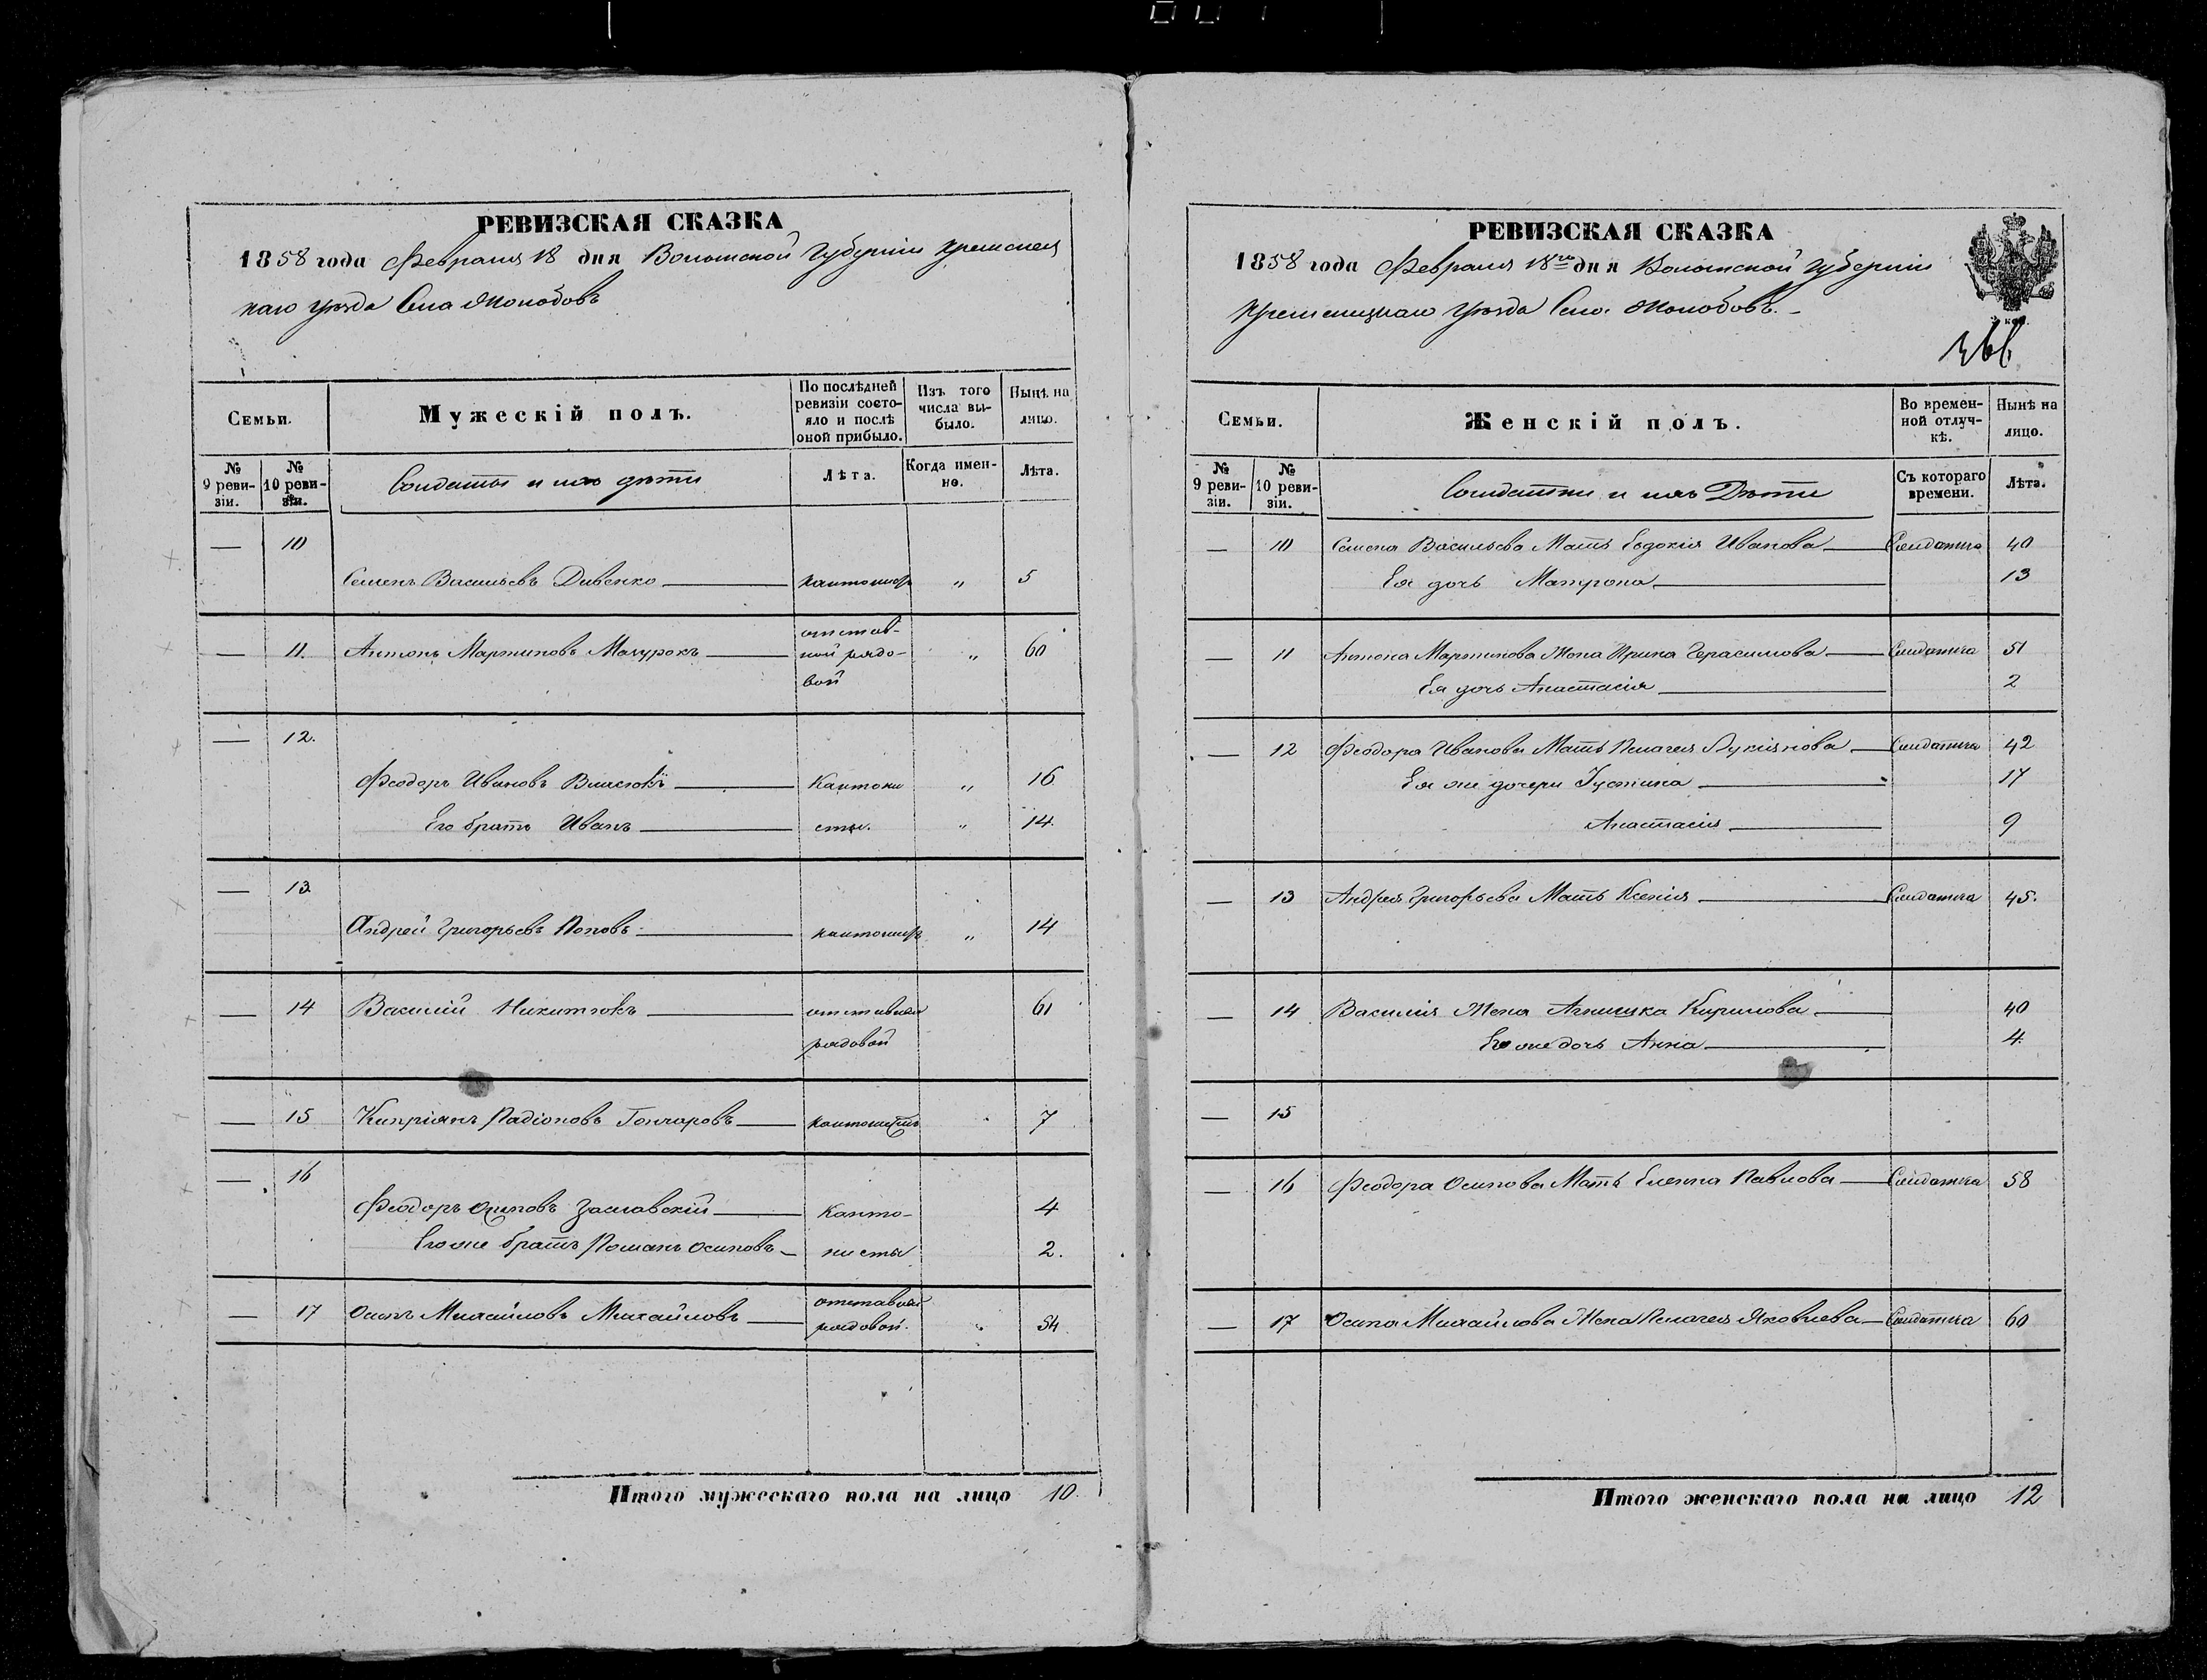 РЕВИЗСКАЯ СКАЗКА
1858 года Февраля 18 дня Волынской Губерніи Кременец
каго уѣзда Села Жолобовъ
Семьи.
Мужескій полъ.
По послѣдней ревизіи состояло и послѣ оной прибыло.
Изъ того числа выбыло.
Нынѣ на лицо.
№ 9 ревизіи.
№ 10 ревизіи.
Солдаты и ихъ дѣти
Лѣта.
Когда именно.
Лѣта.
— 10
Семенъ Васильевъ Дивенко — кантонистъ „ 5
— 11. Антонъ Мартиновъ Мазурокъ — отстав-
ной рядо- „ 60
вой
— 12.
Феодоръ Ивановъ Власюкъ — Кантони „ 16
Его братъ Иванъ — сты. „ 14.
— 13.
Андрей Григорьевъ Поповъ — кантонистъ „ 14
— 14 Василій Никитюкъ — отставной 61
рядовой
— 15 Кипріянъ Радіоновъ Гончаровъ — кантонистъ 7
— 16
Феодоръ Осиповъ Заславскій — Канто- 4
Его же братъ Романъ Осиповъ — нисты 2.
— 17 Осипъ Михайловъ Михайловъ — отставной
рядовой. „ 54
Итого мужескаго пола на лицо 10.
РЕВИЗСКАЯ СКАЗКА
1858 года Февраля 18го дня Волынской Губерніи
Кременецкаго Уѣзда Села Жолобовъ. –
366
Семьи.
Женскій полъ.
Во временной отлучкѣ.
Нынѣ на лицо.
№ 9 ревизіи.
№ 10 ревизіи.
Солдатки и ихъ Дѣти
Съ котораго времени.
Лѣта.
— 10 Семена Васильева Мать Евдокія Иванова — Солдатка 40
Ея дочь Матрона — 13
— 11 Антона Мартинова Жена Ирина Герасимова — Солдатка 51
Ея дочь Анастасія — 2
— 12 Феодора Иванова Мать Пелагея Лукіянова — Солдатка 42
Ея же дочери Іустина — 17
Анастасія — 9
— 13 Андрея Григорьева Мать Ксенія — Солдатка 45.
— 14 Василія Жена Агнишка Кирилова — 40
Его же дочь Анна — 4.
— 15
— 16 Феодора Осипова Мать Еленна Павлова — Солдатка 58
— 17 Осипа Михайлова Жена Пелагея Яковлева — Солдатка 60
Итого женскаго пола на лицо 12